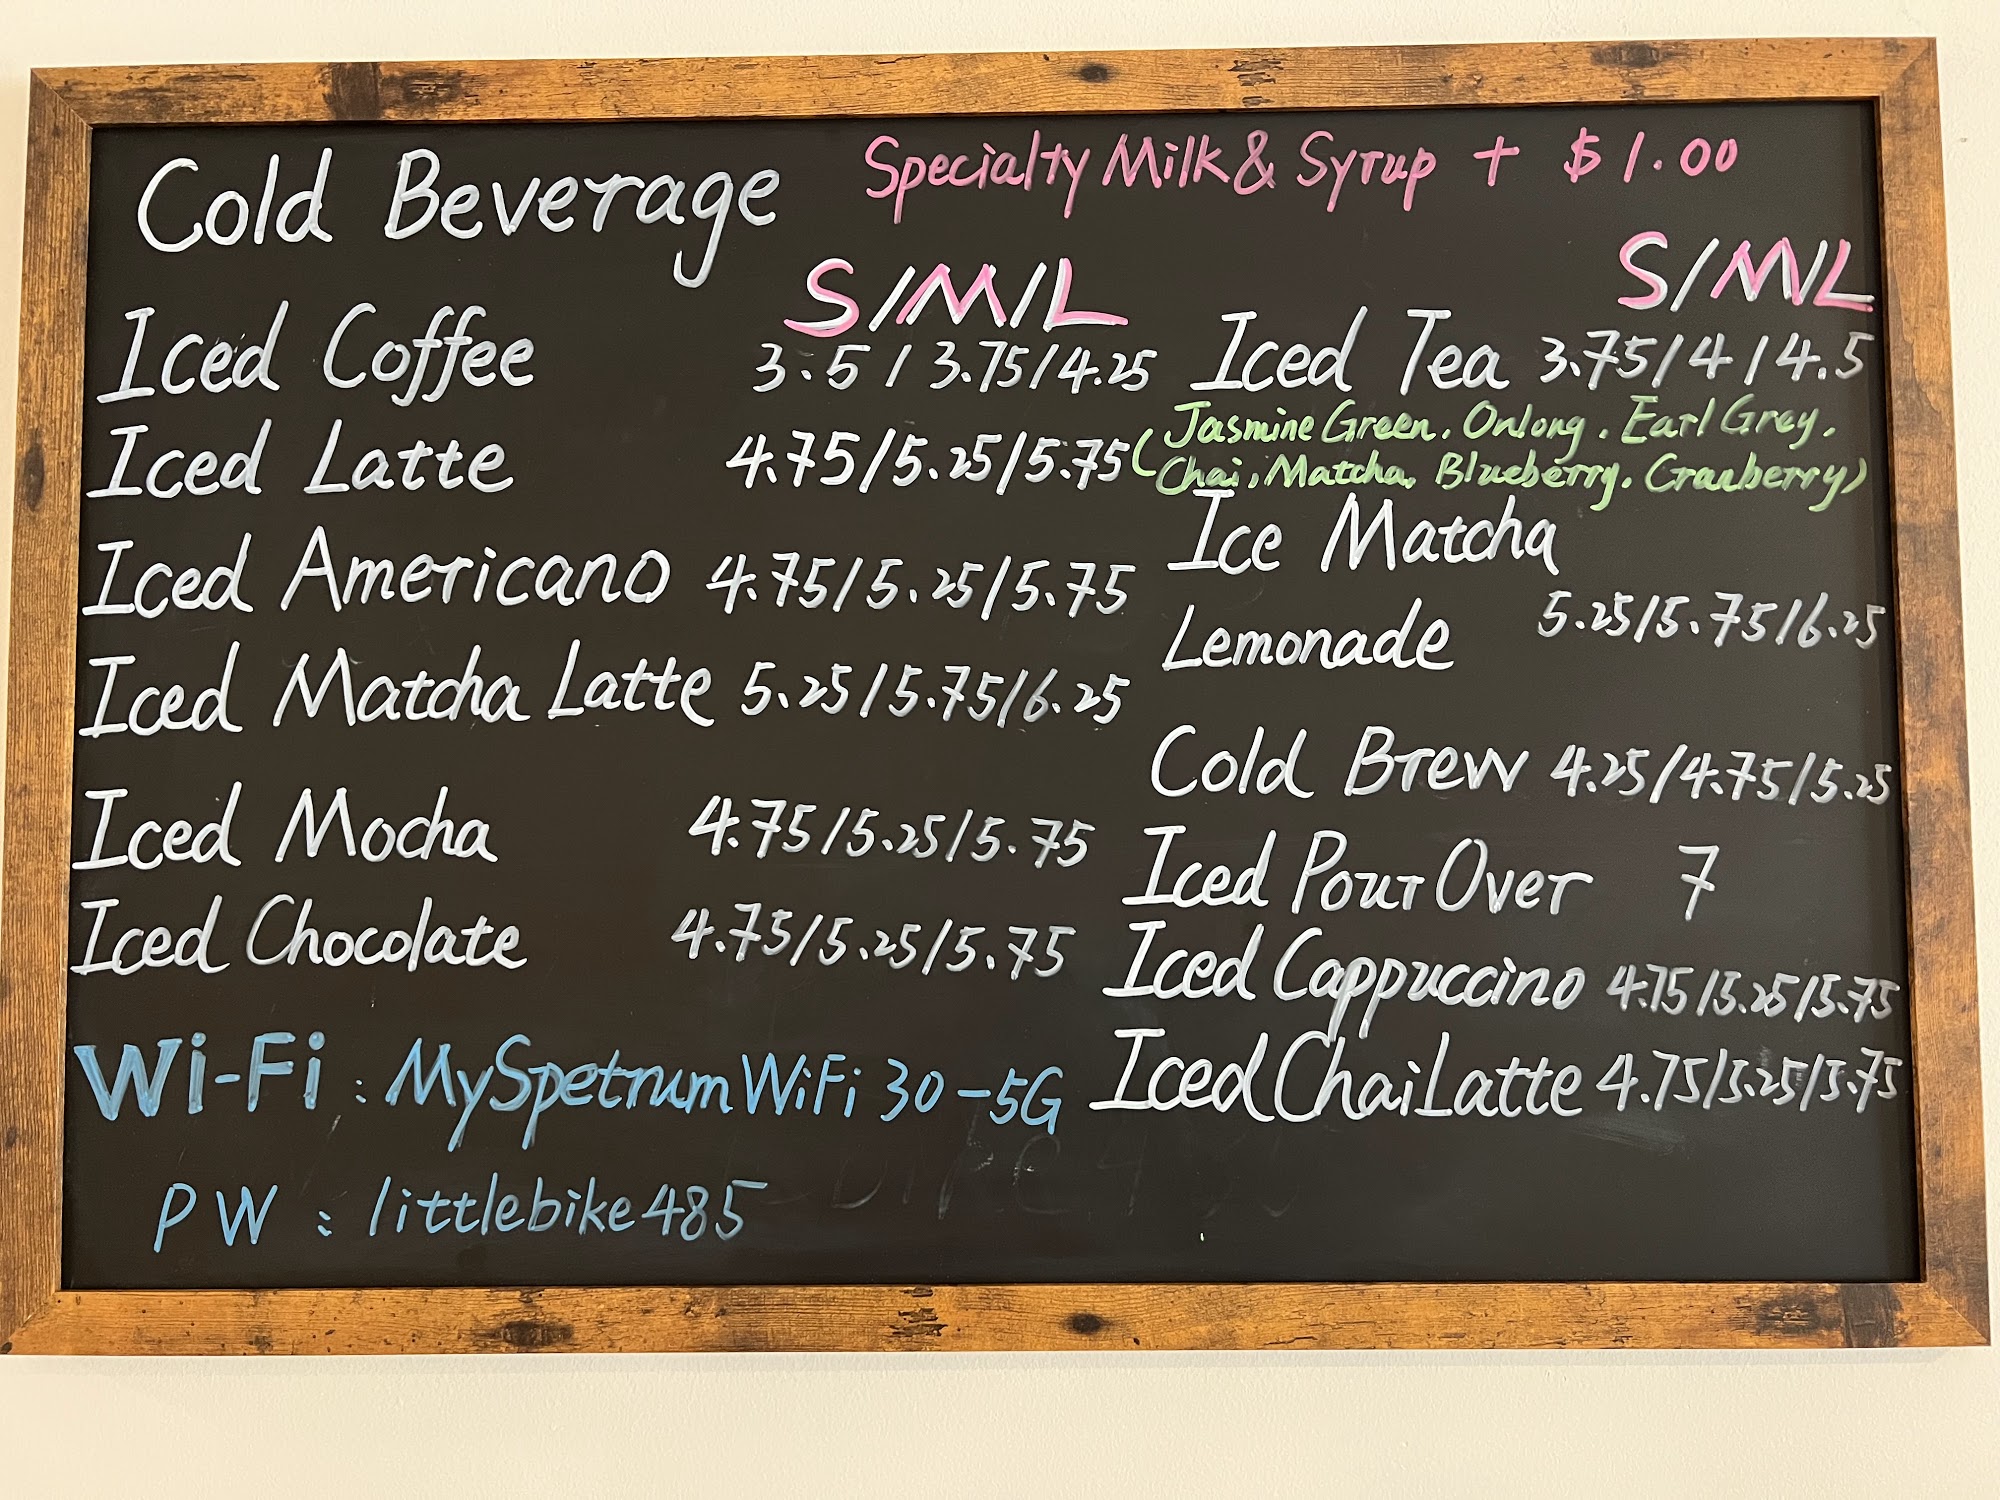 Cold Beverage
Specialty Milk & Syrup + $1.00
S/M/L
Iced Coffee 3.5/3.75/4.25
Iced Latte 4.75/5.25/5.75
Iced Americano 4.75/5.25/5.75
Iced Matcha Latte 5.25/5.75/6.25
Iced Mocha 4.75/5.25/5.75
Iced Chocolate 4.75/5.25/5.75
Wi-Fi: MySpetrumWiFi30-5G
PW: littlebike485
S/M/L
Iced Tea 3.75/4/4.5
(Jasmine Green. Onlong. Earl Grey.
Chai. Matcha. Blueberry. Cranberry)
Ice Matcha
Lemonade 5.25/5.75/6.25
Cold Brew 4.25/4.75/5.25
Iced Pour Over 7
Iced Cappuccino 4.75/5.25/5.75
Iced Chai Latte 4.75/5.25/5.75